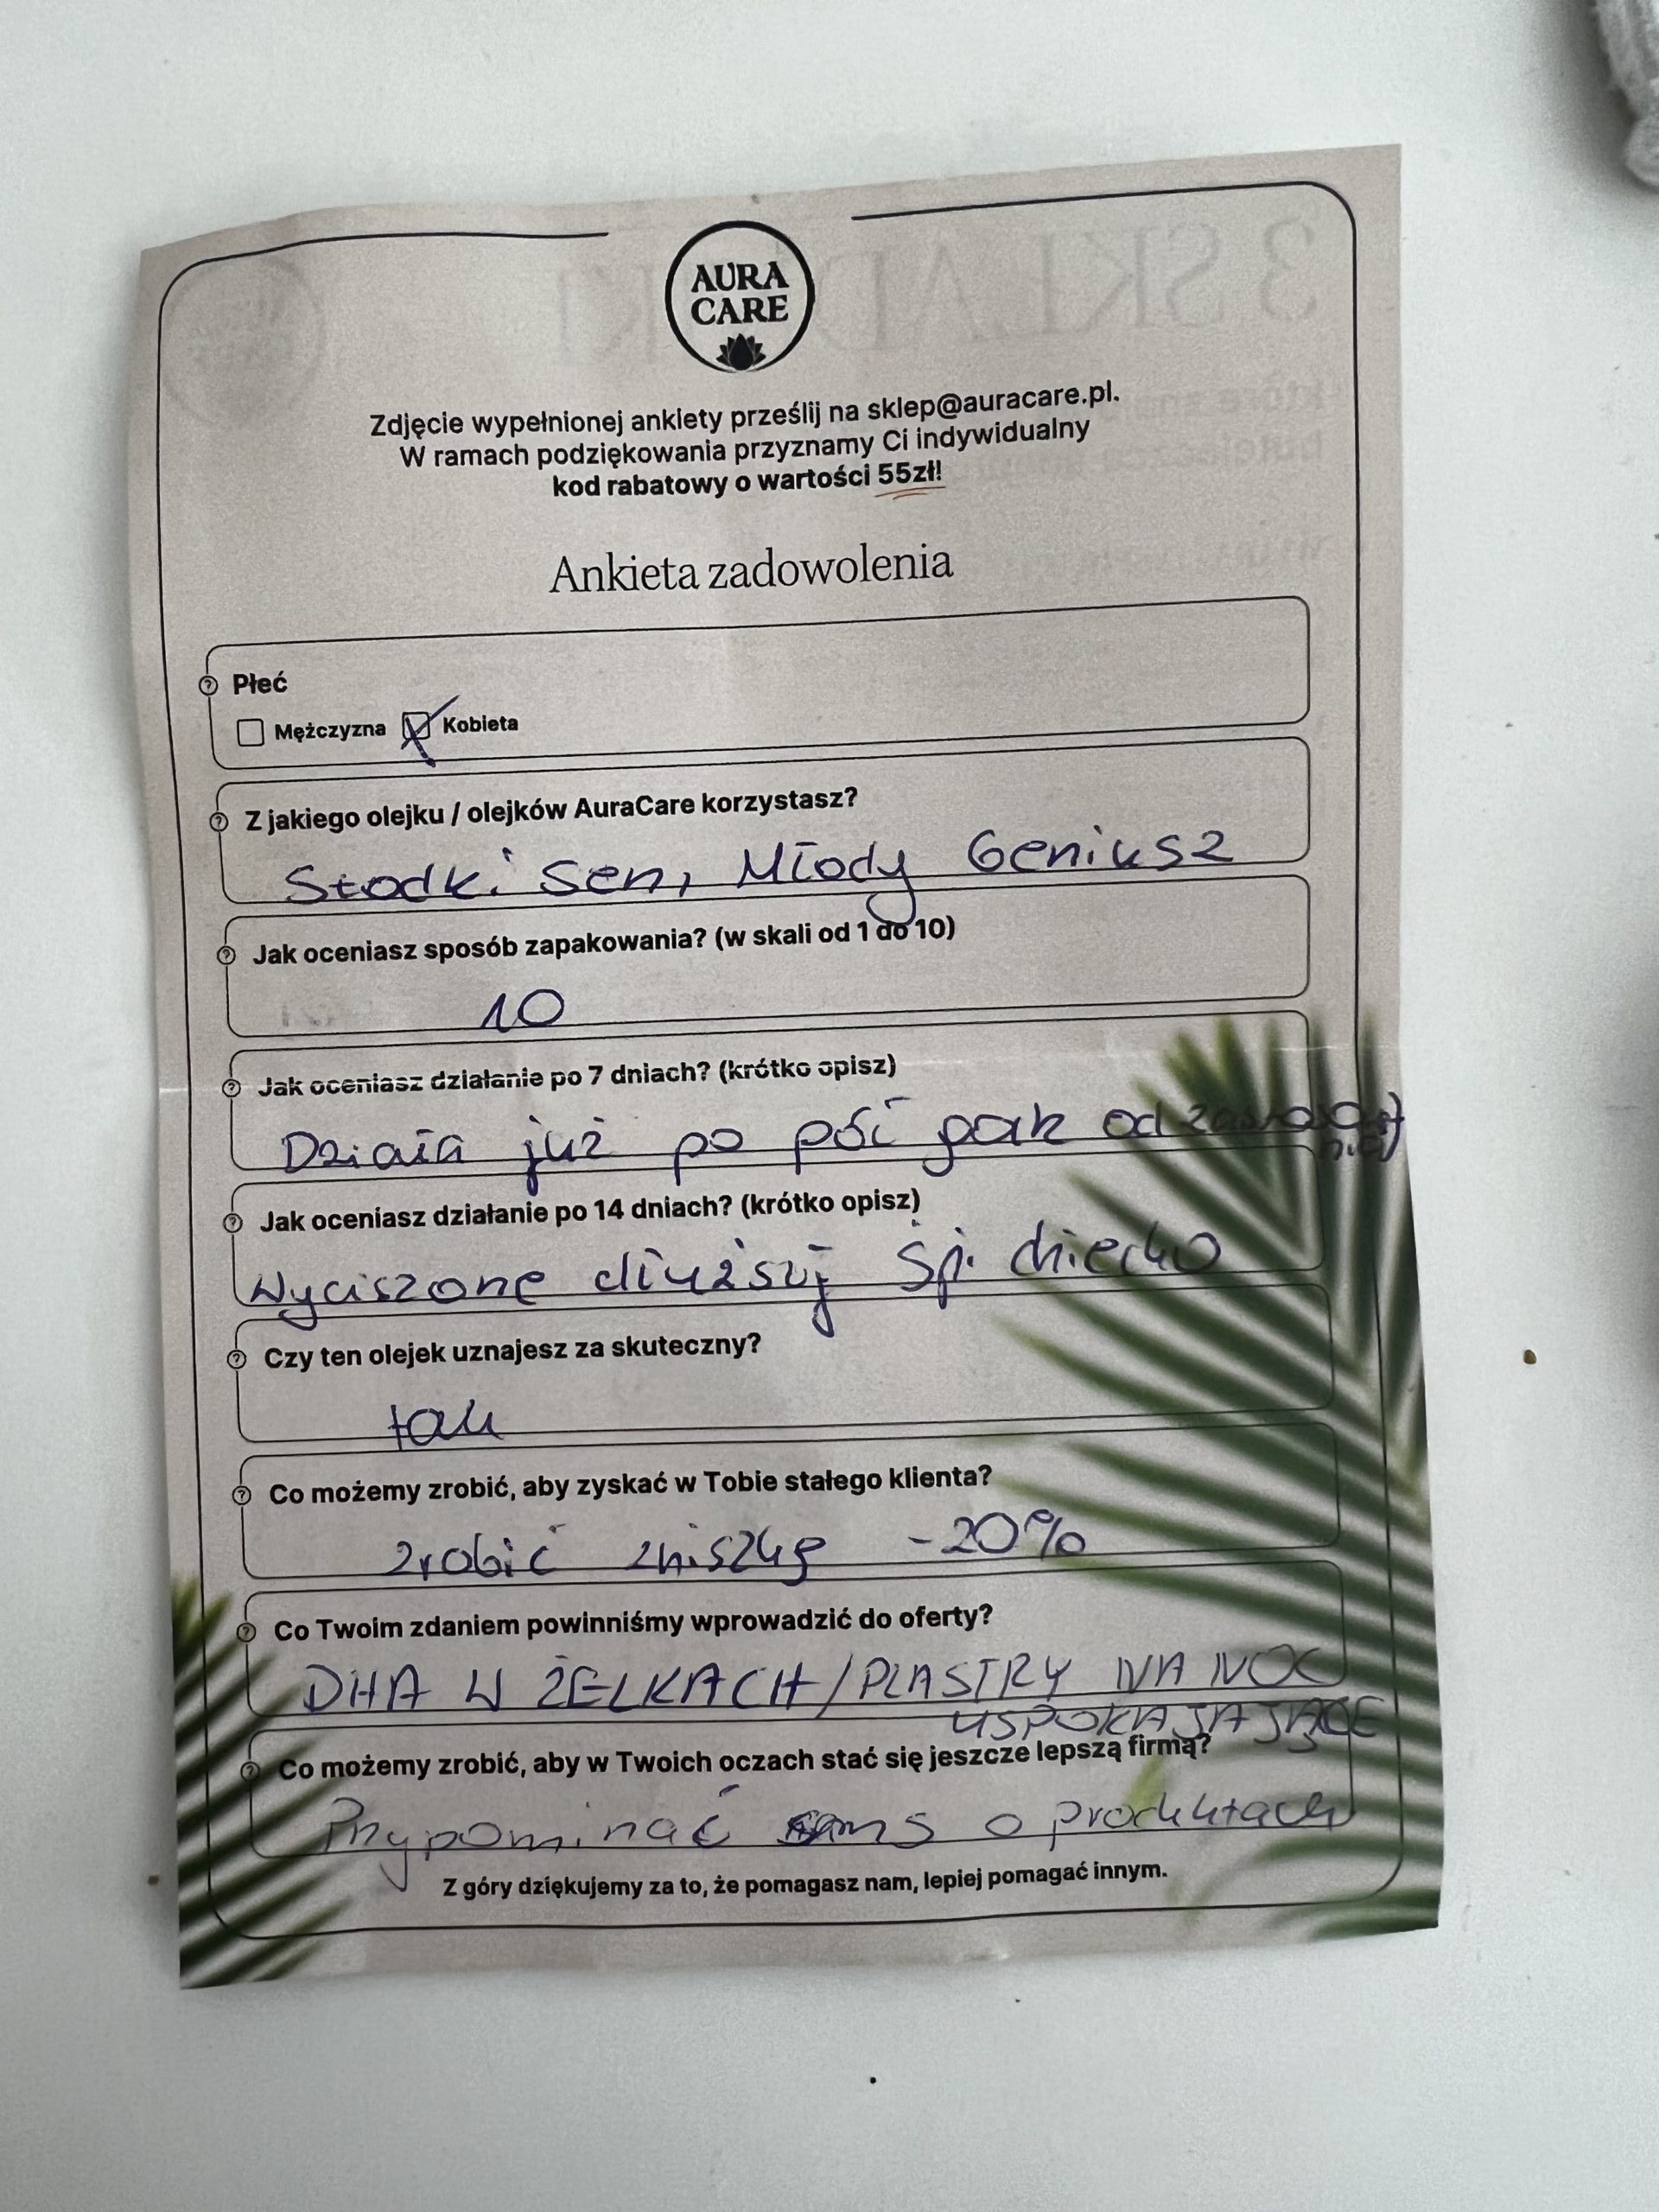 AURA
CARE
Zdjęcie wypełnionej ankiety prześlij na sklep@auracare.pl.
W ramach podziękowania przyznamy Ci indywidualny
kod rabatowy o wartości 55zł!
Ankieta zadowolenia
Płeć
Mężczyzna Kobieta
Z jakiego olejku / olejków AuraCare korzystasz?
Słodki Sen, Młody Geniusz
Jak oceniasz sposób zapakowania? (w skali od 1 do 10)
10
Jak oceniasz działanie po 7 dniach? (krótko opisz)
Działa już po pół godz od
Jak oceniasz działanie po 14 dniach? (krótko opisz)
Wyciszone dłużej śpi dziecko
Czy ten olejek uznajesz za skuteczny?
tak
Co możemy zrobić, aby zyskać w Tobie stałego klienta?
zrobić zniszkę -20%
Co Twoim zdaniem powinniśmy wprowadzić do oferty?
DHA W ŻELKACH/PLASTRY NA NOC
USPOKAJAJĄCE
Co możemy zrobić, aby w Twoich oczach stać się jeszcze lepszą firmą?
Przypominać sms o produktach
Z góry dziękujemy za to, że pomagasz nam, lepiej pomagać innym.
3 SKŁADNIKI